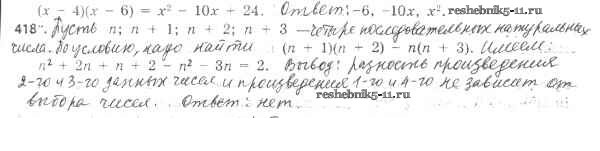 (x − 4)(x − 6) = x² − 10x + 24. Ответ: −6, −10x, x². reshebnik5-11.ru
418°. Пусть n; n + 1; n + 2; n + 3 – четыре последовательных натуральных
числа. По условию, надо найти (n + 1)(n + 2) − n(n + 3). Имеем:
n² + 2n + n + 2 − n² − 3n = 2. Вывод: разность произведения
2-го и 3-го данных чисел и произведения 1-го и 4-го не зависит от
выбора чисел. Ответ: нет. reshebnik5-11.ru